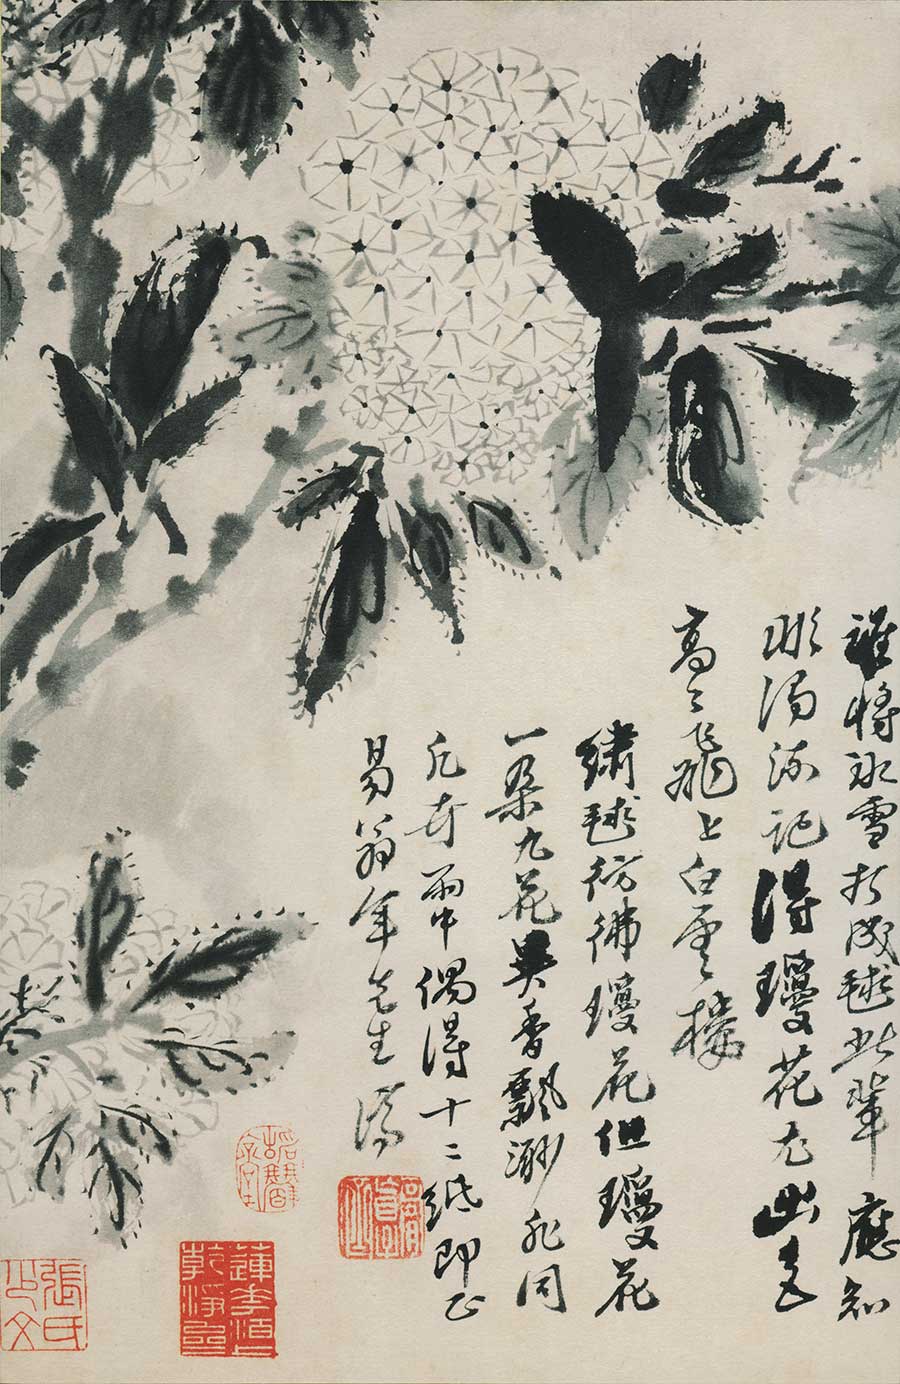 誰將冰雪打成毬此輩應知
濁流記得瓊花尤出
高々飛上白雲樓
繡毬彷彿瓊花但瓊花
一朵九花異香飄渺非同
凡卉雨中偶得十二紙即正
易翁年先生 濟
張氏